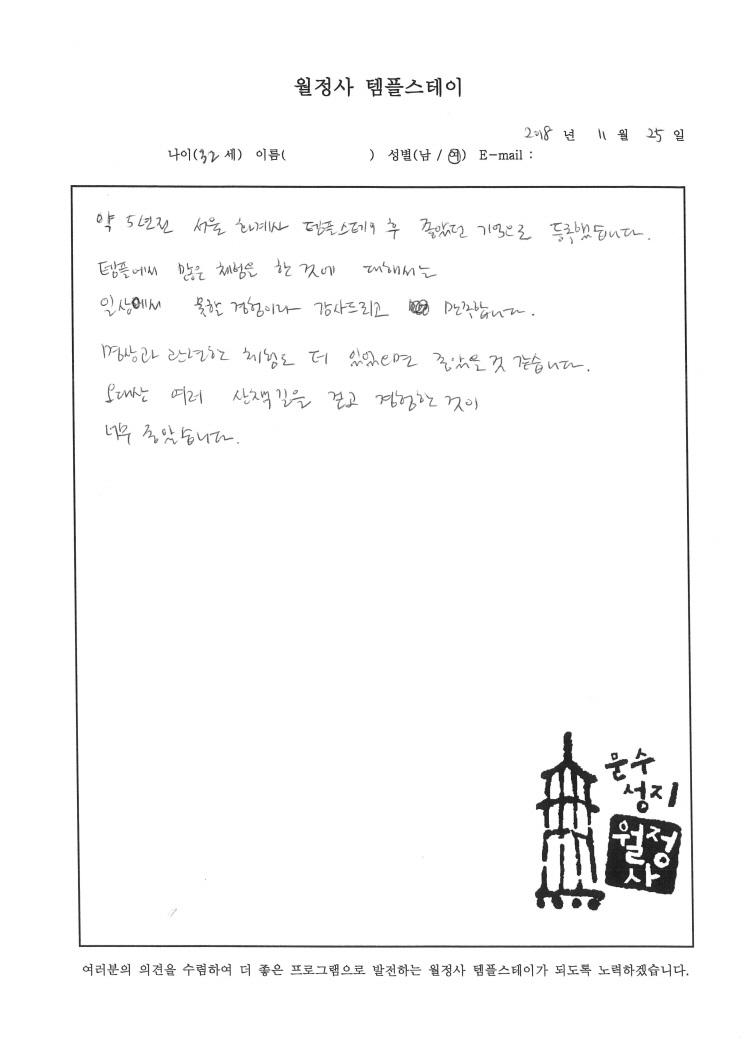 월정사 템플스테이
2018 년 11 월 25 일
나이(32 세) 이름( ) 성별(남 / 여) E-mail :
약 5년전 서울 화계사 템플스테이 후 좋았던 기억으로 등록했습니다.
템플에서 많은 체험을 한 것에 대해서는
일상에서 못할 경험이라 감사드리고 만족합니다.
명상과 관련한 체험도 더 있었으면 좋았을 것 같습니다.
오대산 여러 산책길을 걷고 경험한 것이
너무 좋았습니다.
문수
성지
월정
사
여러분의 의견을 수렴하여 더 좋은 프로그램으로 발전하는 월정사 템플스테이가 되도록 노력하겠습니다.